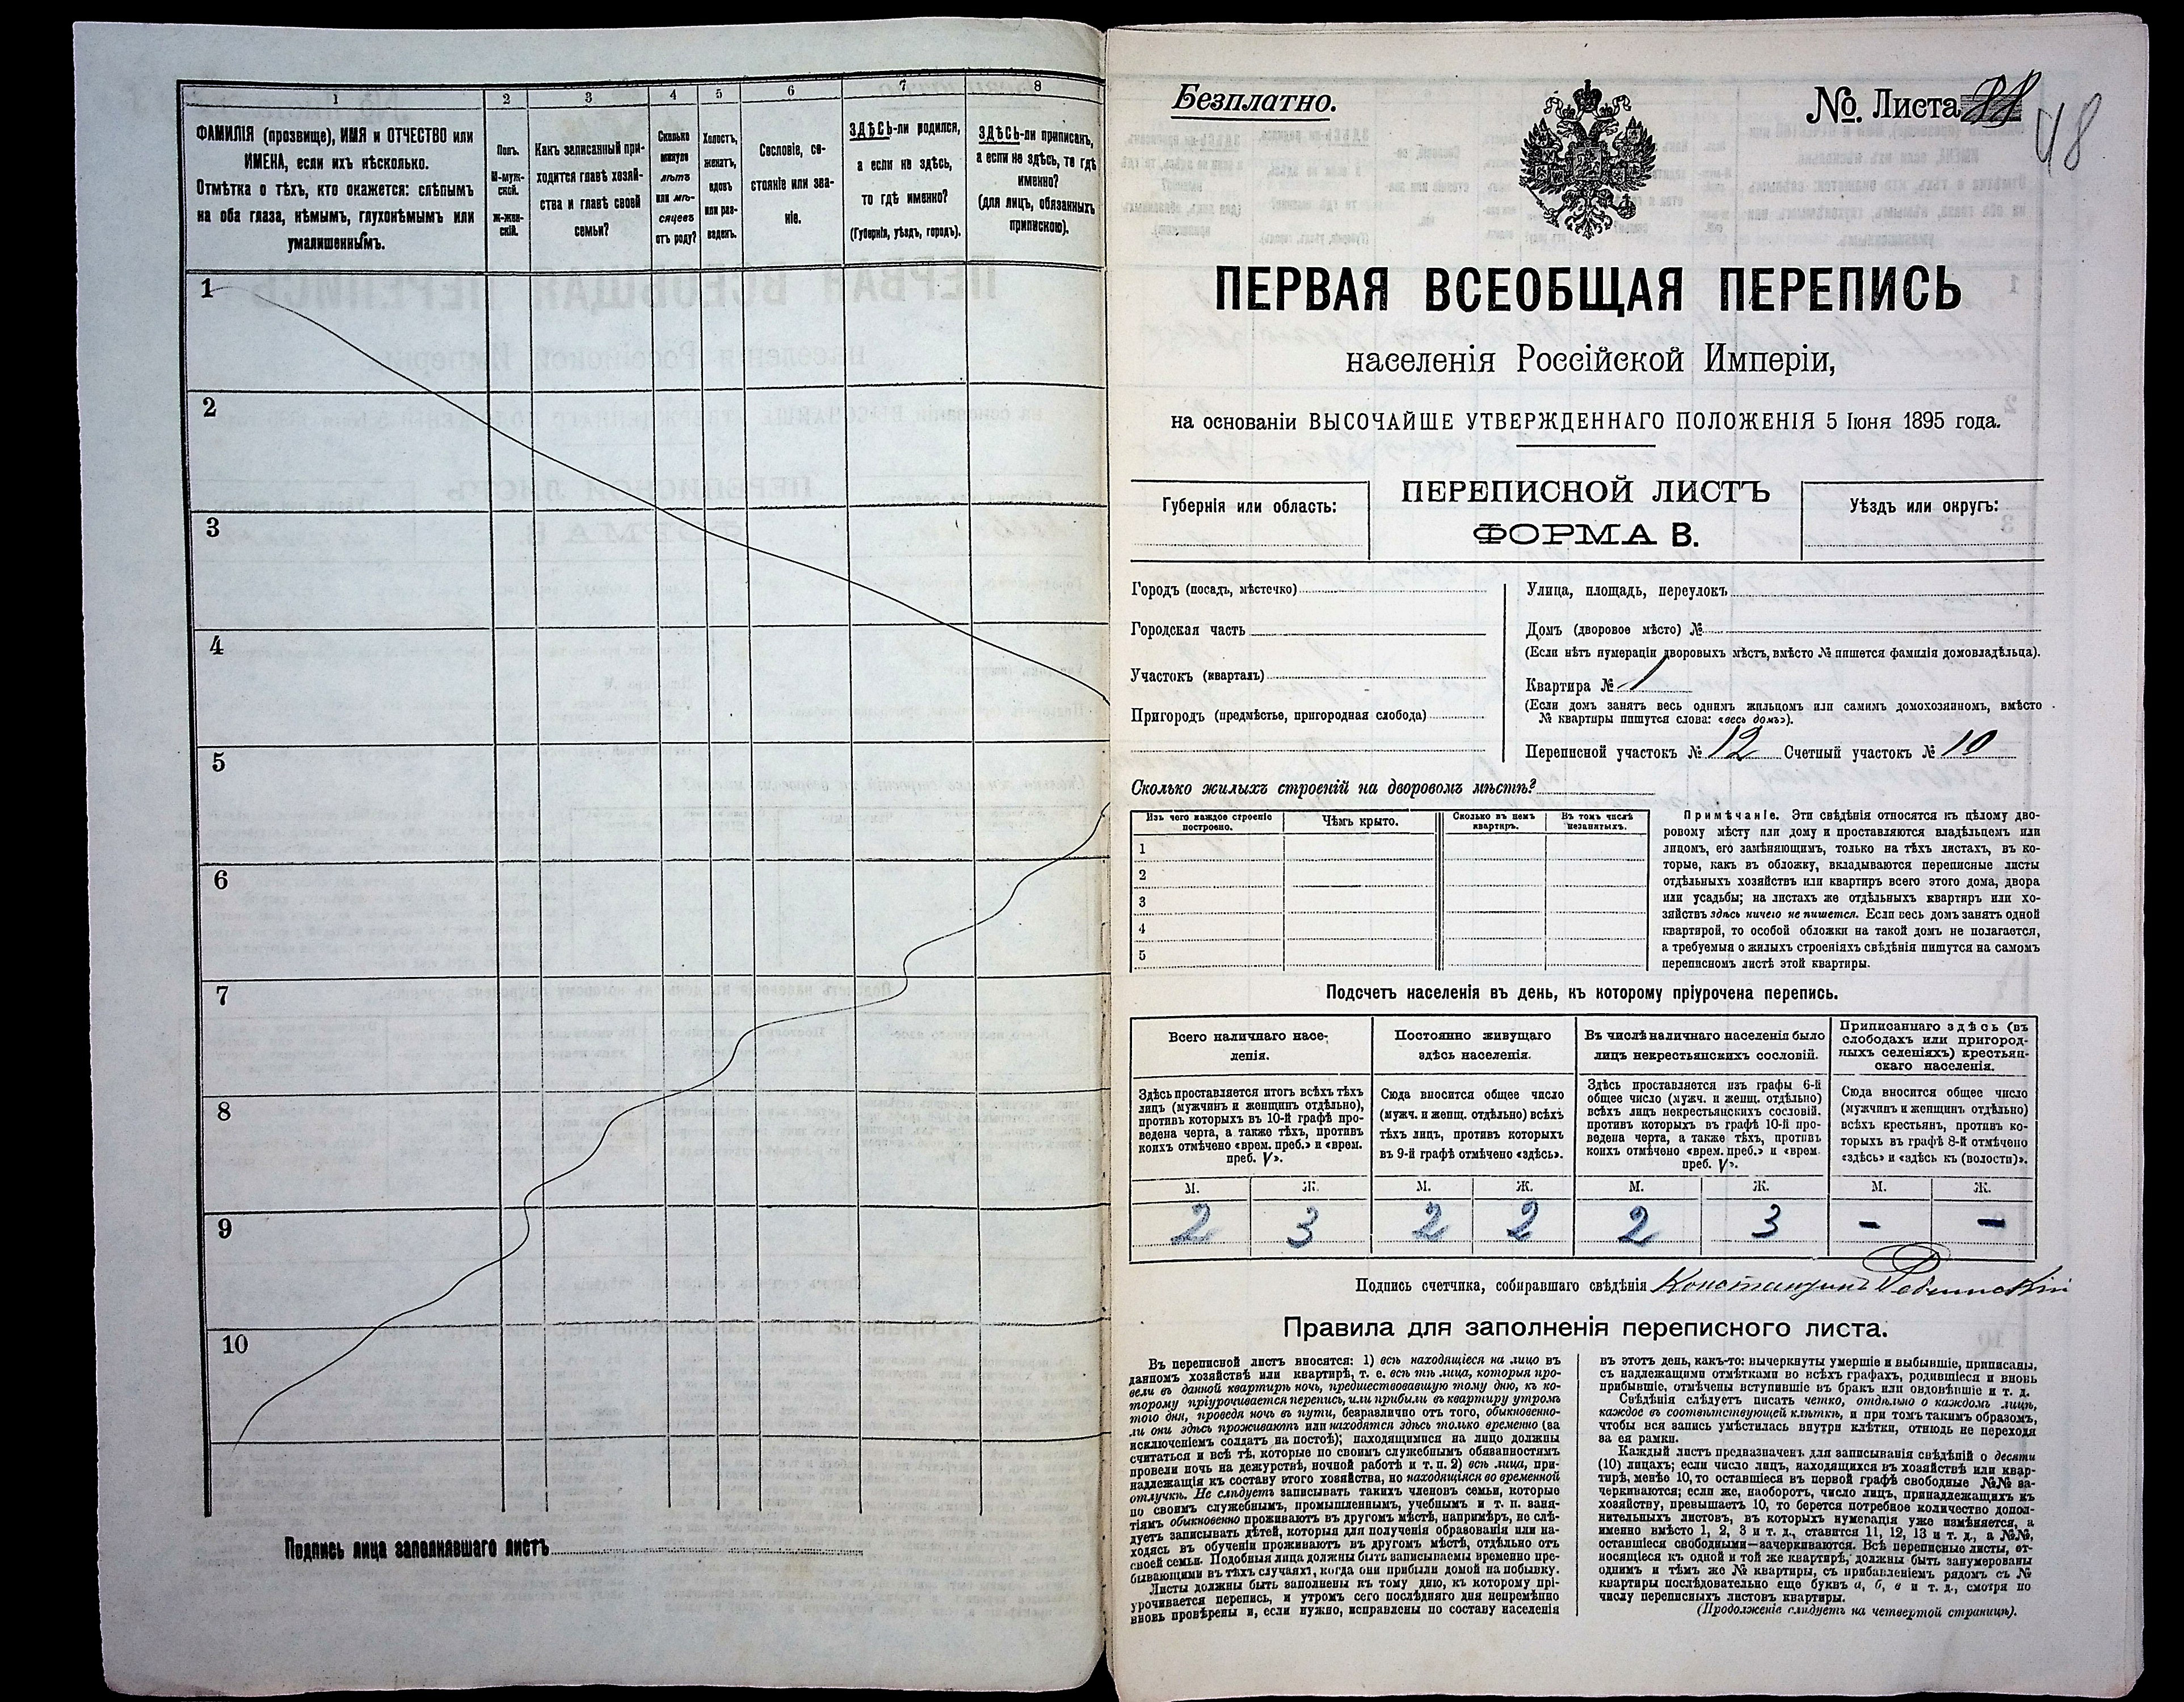 1
2
3
4
5
6
7
8
ФАМИЛІЯ (прозвище), ИМЯ и ОТЧЕСТВО или
ИМЕНА, если ихъ нѣсколько.
Отмѣтка о тѣхъ, кто окажется: слѣпымъ
на оба глаза, нѣмымъ, глухонѣмымъ или
умалишеннымъ.
Полъ.
М-муж-
ской.
Ж-жен-
скій.
Какъ записанный при-
ходится главѣ хозяй-
ства и главѣ своей
семьи?
Сколько
минуло
лѣтъ
или мѣ-
сяцевъ
отъ роду?
Холостъ,
женатъ,
вдовъ
или раз-
веденъ.
Сословіе, со-
стояніе или зва-
ніе.
ЗДѢСЬ-ли родился,
а если не здѣсь,
то гдѣ именно?
(Губернія, уѣздъ, городъ).
ЗДѢСЬ-ли приписанъ,
а если не здѣсь, то гдѣ
именно?
(для лицъ, обязанныхъ
припискою).
1
2
3
4
5
6
7
8
9
10
Подпись лица заполнявшаго листъ
Безплатно.
№ Листа
48
ПЕРВАЯ ВСЕОБЩАЯ ПЕРЕПИСЬ
населенія Россійской Имперіи,
на основаніи ВЫСОЧАЙШЕ УТВЕРЖДЕННАГО ПОЛОЖЕНІЯ 5 Іюня 1895 года.
Губернія или область:
ПЕРЕПИСНОЙ ЛИСТЪ
ФОРМА В.
Уѣздъ или округъ:
Городъ (посадъ, мѣстечко)
Городская часть
Участокъ (кварталъ)
Пригородъ (предмѣстье, пригородная слобода)
Улица, площадь, переулокъ
Домъ (дворовое мѣсто) №
(Если нѣтъ нумераціи дворовыхъ мѣстъ, вмѣсто № пишется фамилія домовладѣльца).
Квартира № 1
(Если домъ занятъ весь однимъ жильцомъ или самимъ домохозяиномъ, вмѣсто
№ квартиры пишутся слова: «весь домъ»).
Переписной участокъ № 12 Счетный участокъ № 10
Сколько жилыхъ строеній на дворовомъ мѣстѣ?
Изъ чего каждое строеніе
построено.
Чѣмъ крыто.
Сколько въ немъ
квартиръ.
Въ томъ числѣ
незанятыхъ.
1
2
3
4
5
Примѣчаніе. Эти свѣдѣнія относятся къ цѣлому дво-
ровому мѣсту или дому и проставляются владѣльцемъ или
лицомъ, его замѣняющимъ, только на тѣхъ листахъ, въ ко-
торые, какъ въ обложку, вкладываются переписные листы
отдѣльныхъ хозяйствъ или квартиръ всего этого дома, двора
или усадьбы; на листахъ же отдѣльныхъ квартиръ или хо-
зяйствъ здѣсь ничего не пишется. Если весь домъ занятъ одной
квартирой, то особой обложки на такой домъ не полагается,
а требуемыя о жилыхъ строеніяхъ свѣдѣнія пишутся на самомъ
переписномъ листѣ этой квартиры.
Подсчетъ населенія въ день, къ которому пріурочена перепись.
Всего наличнаго насе-
ленія.
Постоянно живущаго
здѣсь населенія.
Въ числѣ наличнаго населенія было
лицъ некрестьянскихъ сословій.
Приписаннаго здѣсь (въ
слободахъ или пригород-
ныхъ селеніяхъ) крестьян-
скаго населенія.
Здѣсь проставляется итогъ всѣхъ тѣхъ
лицъ (мужчинъ и женщинъ отдѣльно),
противъ которыхъ въ 10-й графѣ про-
ведена черта, а также тѣхъ, противъ
коихъ отмѣчено «врем. преб.» и «врем.
преб. V».
Сюда вносится общее число
(мужч. и женщ. отдѣльно) всѣхъ
тѣхъ лицъ, противъ которыхъ
въ 9-й графѣ отмѣчено «здѣсь».
Здѣсь проставляется изъ графы 6-й
общее число (мужч. и женщ. отдѣльно)
всѣхъ лицъ некрестьянскихъ сословій,
противъ которыхъ въ графѣ 10-й про-
ведена черта, а также тѣхъ, противъ
коихъ отмѣчено «врем. преб.» и «врем.
преб. V».
Сюда вносится общее число
(мужчинъ и женщинъ отдѣльно)
всѣхъ крестьянъ, противъ ко-
торыхъ въ графѣ 8-й отмѣчено
«здѣсь» и «здѣсь къ (волости)».
М. Ж. М. Ж. М. Ж. М. Ж.
2 3 2 2 2 3 - -
Подпись счетчика, собиравшаго свѣдѣнія Константинъ
Правила для заполненія переписного листа.
Въ переписной листъ вносятся: 1) всѣ находящіеся на лицо въ
данномъ хозяйствѣ или квартирѣ, т. е. всѣ тѣ лица, которыя про-
вели въ данной квартирѣ ночь, предшествовавшую тому дню, къ ко-
торому пріурочивается перепись, или прибыли въ квартиру утромъ
того дня, проведя ночь въ пути, безразлично отъ того, обыкновенно-
ли они здѣсь проживаютъ или находятся здѣсь только временно (за
исключеніемъ солдатъ на постоѣ); находящимися на лицо должны
считаться и всѣ тѣ, которые по своимъ служебнымъ обязанностямъ
провели ночь на дежурствѣ, ночной работѣ и т. п. 2) всѣ лица, при-
надлежащія къ составу этого хозяйства, но находящіяся во временной
отлучкѣ. Не слѣдуетъ записывать такихъ членовъ семьи, которые
по своимъ служебнымъ, промышленнымъ, учебнымъ и т. п. заня-
тіямъ обыкновенно проживаютъ въ другомъ мѣстѣ, напримѣръ, не слѣ-
дуетъ записывать дѣтей, которыя для полученія образованія или на-
ходясь въ обученіи проживаютъ въ другомъ мѣстѣ, отдѣльно отъ
своей семьи. Подобныя лица должны быть записываемы временно пре-
бывающими въ тѣхъ случаяхъ, когда они прибыли домой на побывку.
Листы должны быть заполнены къ тому дню, къ которому прі-
урочивается перепись, и утромъ сего послѣдняго дня непремѣнно
вновь провѣрены и, если нужно, исправлены по составу населенія
въ этотъ день, какъ-то: вычеркнуты умершіе и выбывшіе, приписаны,
съ надлежащими отмѣтками во всѣхъ графахъ, родившіеся и вновь
прибывшіе, отмѣчены вступившіе въ бракъ или овдовѣвшіе и т. д.
Свѣдѣнія слѣдуетъ писать четко, отдѣльно о каждомъ лицѣ,
каждое въ соотвѣтствующей клѣткѣ, и при томъ такимъ образомъ,
чтобы вся запись умѣстилась внутри клѣтки, отнюдь не переходя
за ея рамки.
Каждый листъ предназначенъ для записыванія свѣдѣній о десяти
(10) лицахъ; если число лицъ, находящихся въ хозяйствѣ или квар-
тирѣ, менѣе 10, то оставшіеся въ первой графѣ свободные №№ за-
черкиваются; если же, наоборотъ, число лицъ, принадлежащихъ къ
хозяйству, превышаетъ 10, то берется потребное количество допол-
нительныхъ листовъ, въ которыхъ нумерація уже измѣняется, а
именно вмѣсто 1, 2, 3 и т. д., ставится 11, 12, 13 и т. д., а №№,
оставшіеся свободными—зачеркиваются. Всѣ переписные листы, от-
носящіеся къ одной и той же квартирѣ, должны быть занумерованы
однимъ и тѣмъ же № квартиры, съ прибавленіемъ рядомъ съ №
квартиры послѣдовательно еще буквъ а, б, в и т. д., смотря по
числу переписныхъ листовъ квартиры.
(Продолженіе слѣдуетъ на четвертой страницѣ).